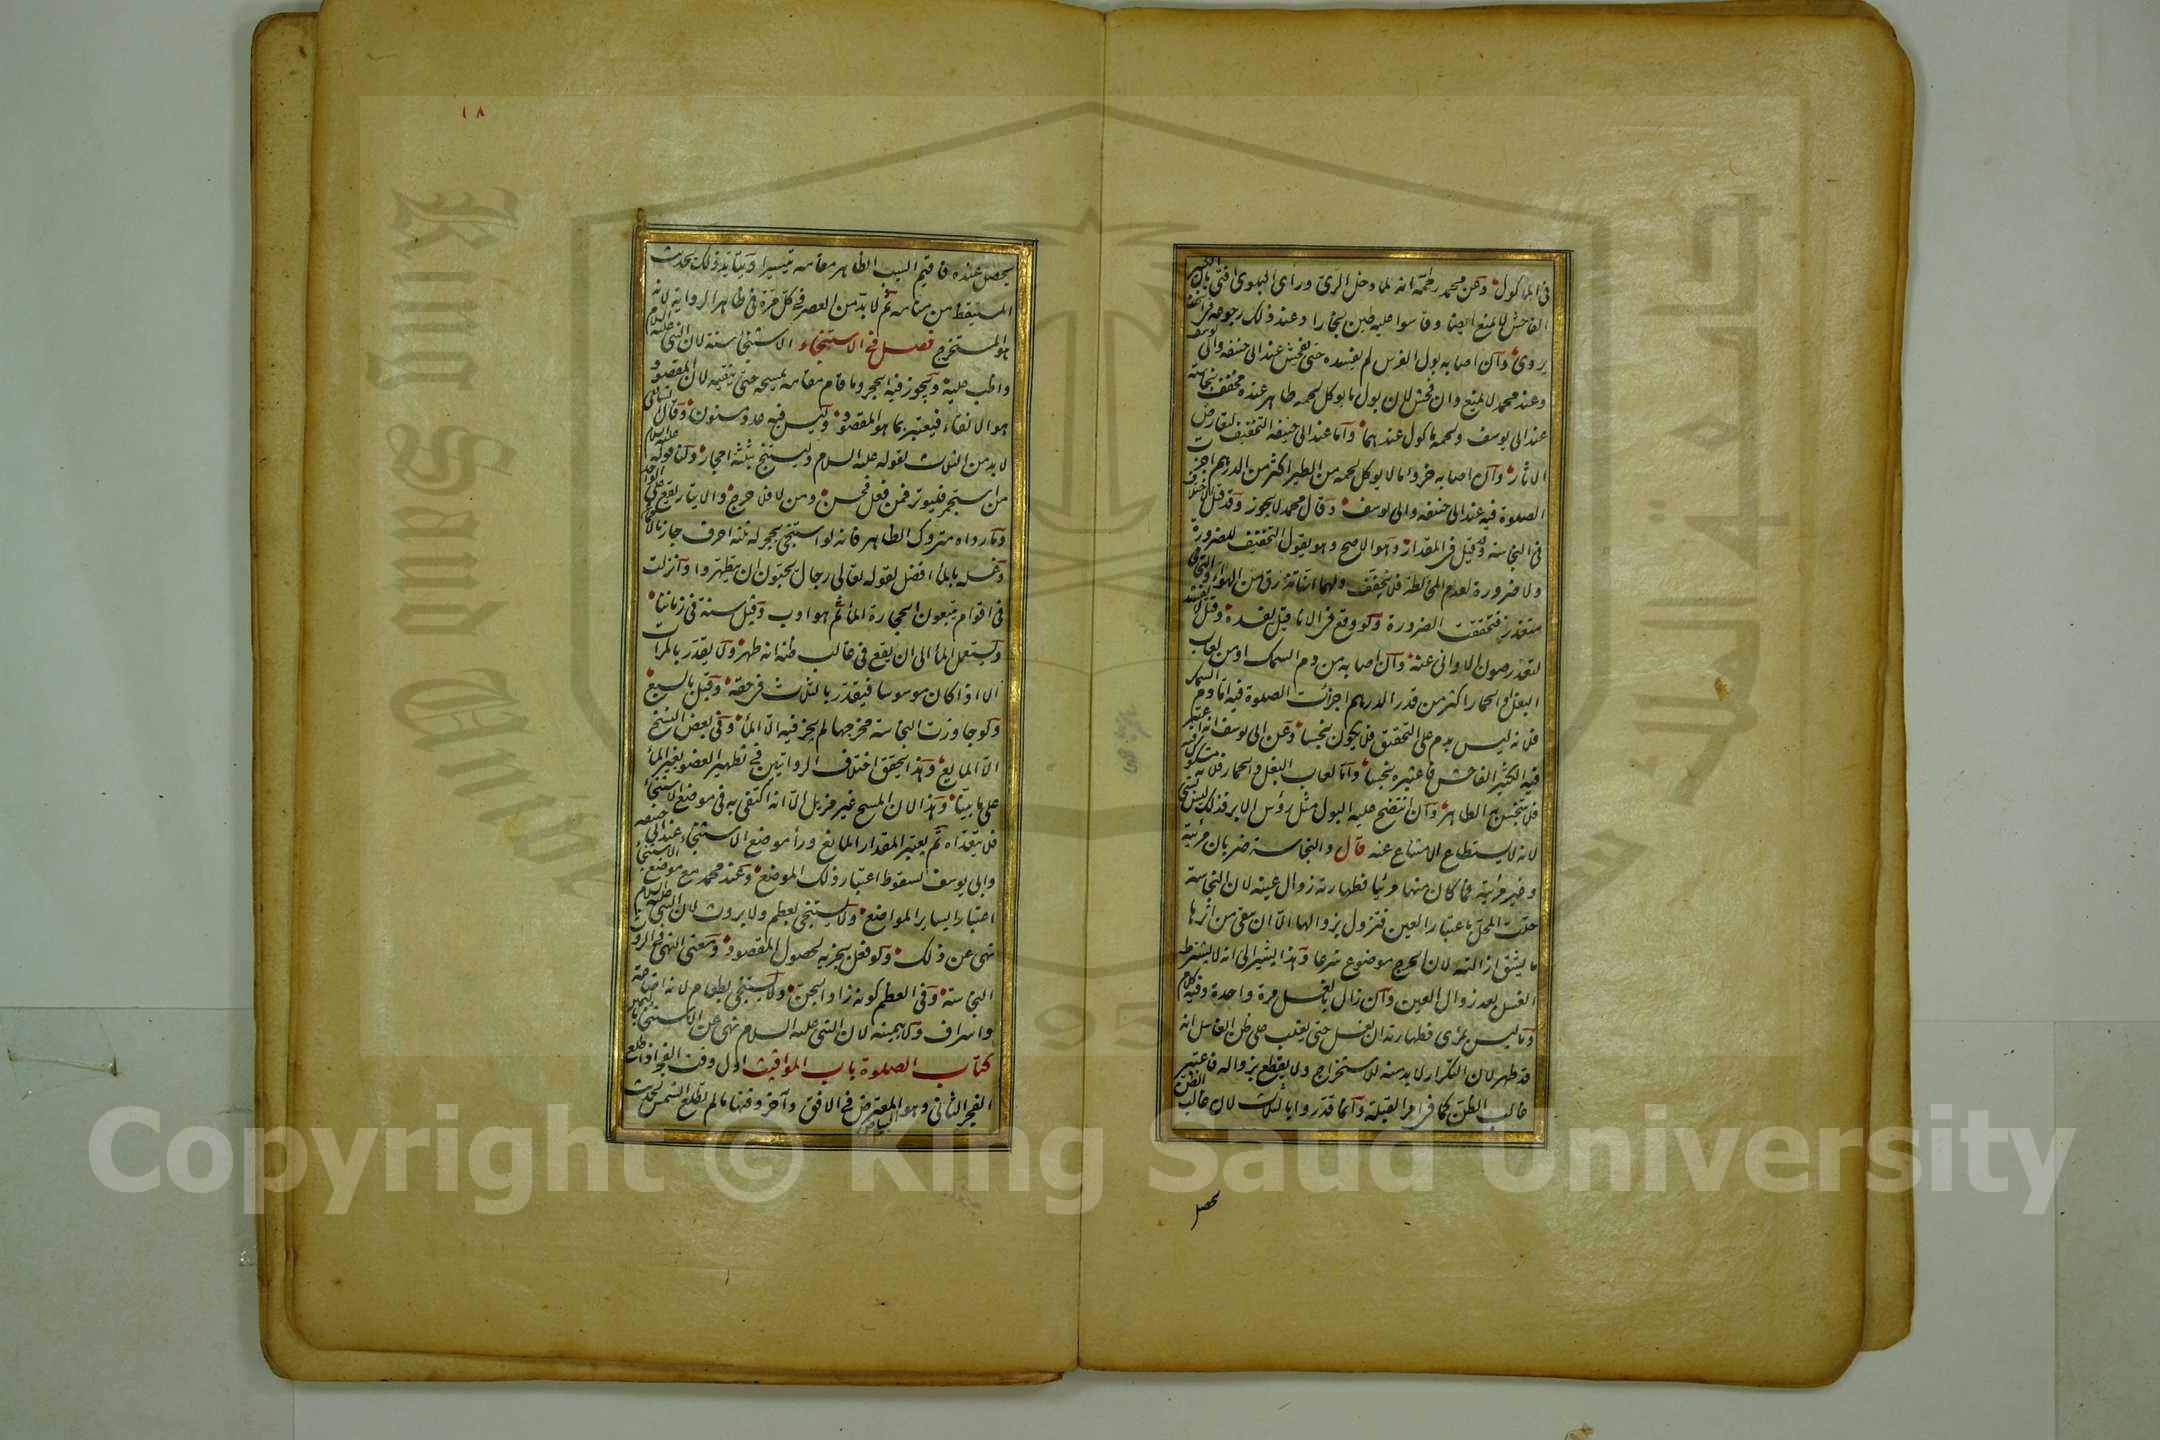 في المأكول وعن محمد رحمه انه لما دخل الري ورأى البلوى افتى بان الكثير
الفاحش لا يمنع ايضا وقاسوا عليه طين بخارا وعند ذلك رجوعه في الخف
يروى وان اصابه بول الفرس لم يفسده حتى يفحش عند ابي حنيفه وابي يوسف
وعند محمد لا يمنع وان فحش لان بول ما يوكل لحمه طاهر عنده مخفف نجاسته
عند ابي يوسف ولحمه ماكول عندهما واما عند ابي حنيفه التخفيف لتعارض
الاثار وان اصابه خرؤ ما لا يوكل لحمه من الطير اكثر من الدرهم اجزت
الصلوة فيه عند ابي حنيفه وابي يوسف وقال محمد لا يجوز وقد قيل الاختلاف
في النجاسة وقد قيل في المقدار وهو الاصح وهو يقول التخفيف للضرورة
ولا ضرورة لعدم المخالطة فلا يخفف ولهما انها تذرق من الهواء والتحامي
متعذر فتحققت الضرورة ولو وقع في الاناء قيل يفسده وقيل لا يفسد
لتعذر صون الاواني عنه وان اصابه من دم السمك او من لعاب
البغل او الحمار اكثر من قدر الدرهم اجزأت الصلوة فيه اما دم السمك
فلانه ليس بدم على التحقيق فلا يكون نجسا وعن ابي يوسف انه اعتبر
فيه الكثير الفاحش فاعتبره نجسا واما لعاب البغل والحمار فلانه مشكوك فيه
فلا يتنجس به الطاهر وان انتضح عليه البول مثل رؤس الابر فذلك ليس بشئ
لانه لا يستطاع الامتناع عنه قال والنجاسة ضربان مرئية
وغير مرئية فما كان منها مرئيا فطهارته زوال عينه لان النجاسة
حلت المحل باعتبار العين فتزول بزوالها الا ان يبقى من اثرها
ما يشق ازالته لان الحرج موضوع شرعا وهذا يشير الى انه لا يشترط
الغسل بعد زوال العين وان زال بالغسل مرة واحدة وفيه كلام
وما ليس بمرئي فطهارته ان يغسل حتى يغلب على ظن الغاسل انه
قد طهر لان التكرار لا بد منه للاستخراج ولا يقطع بزواله فاعتبر
غالب الظن كما في امر القبلة وانما قدروا بالثلاث لان غالب الظن
يحصل
١٨
يحصل عنده فاقيم السبب الظاهر مقامه تيسيرا ويتايد ذلك بحديث
المستيقظ من منامه ثم لا بد من العصر في كل مرة في ظاهر الرواية لانه
هو المستخرج فصل في الاستنجاء الاستنجا سنة لان النبي عليه السلام
واظب عليه ويجوز فيه الحجر وما قام مقامه يمسحه حتى ينقيه لان المقصود
هو الانقاء فيعتبر بما هو المقصود وليس فيه عدد مسنون وقال الشافعي
لا بد من الثلاث لقوله عليه السلام وليستنج بثلثة احجار ولنا قوله عليه السلام
من استجمر فليوتر فمن فعل فحسن ومن لا فلا حرج والايتار يقع على الواحد
وما رواه متروك الظاهر فانه لو استنجى بحجر له ثلثة احرف جاز بالاجماع
وغسله بالماء افضل لقوله تعالى رجال يحبون ان يتطهروا وانزلت
في اقوام يتبعون الحجارة الماء ثم هو ادب وقيل سنة في زماننا
ويستعمل الماء الى ان يقع في غالب ظنه انه طهر ولا يقدر بالمرات
الا اذا كان موسوسا فيقدر بالثلاث في حقه وقيل بالسبع
ولو جاوزت النجاسة مخرجها لم يجز فيه الا الماء وفي بعض النسخ
الا المايع وهذا يحقق اختلاف الروايتين في تطهير العضو بغير الماء
على ما بينا وهذا لان المسح غير مزيل الا انه اكتفى به في موضع الاستنجاء
فلا يتعداه ثم يعتبر المقدار المانع وراء موضع الاستنجاء عند ابي حنيفه
وابي يوسف لسقوط اعتبار ذلك الموضع وعند محمد مع موضع الاستنجاء
اعتبارا بساير المواضع ولا يستنجى بعظم ولا بروث لان النبي عليه السلام
نهى عن ذلك ولو فعل يجزيه لحصول المقصود ومعنى النهي في الروث
النجاسة وفي العظم كونه زاد الجن ولا يستنجى بطعام لانه اضاعة
واسراف ولا بيمينه لان النبي عليه السلام نهى عن الاستنجاء باليمين
كتاب الصلوة باب المواقيت اول وقت الفجر اذا طلع
الفجر الثاني وهو البياض المعترض في الافق وآخر وقتها ما لم تطلع الشمس لحديث
Copyright © King Saud University